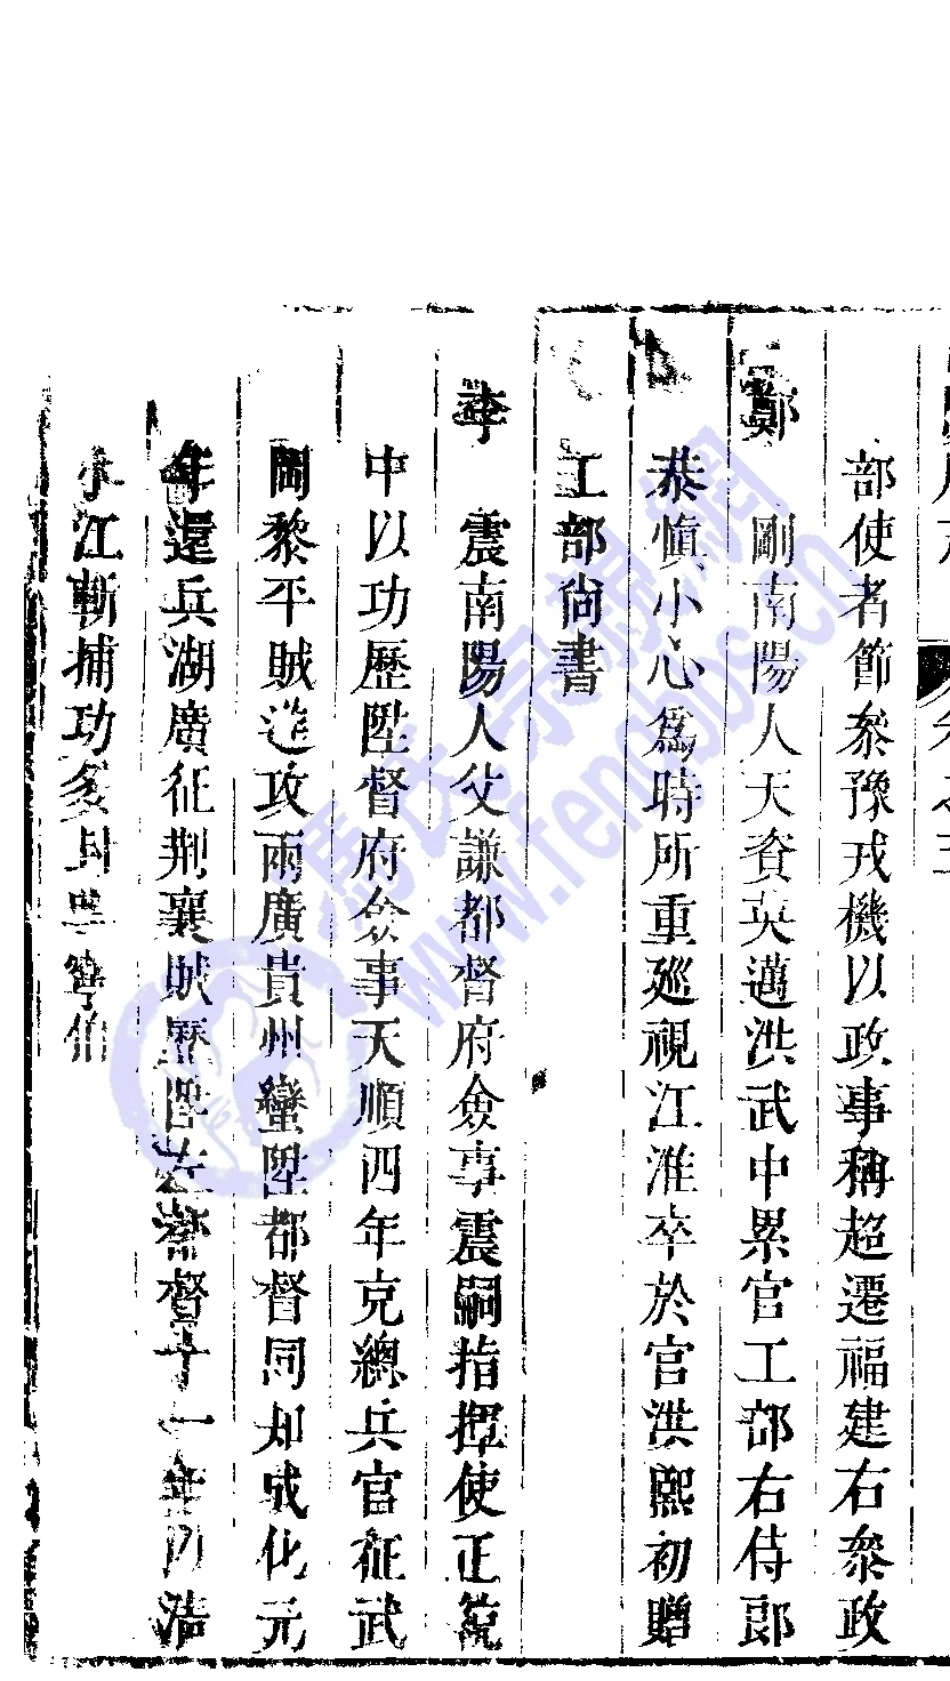 部使者節叅豫戎機以政事稱超遷福建右叅政
鄭剛南陽人天資英邁洪武中累官工部右侍郎
恭慎小心爲時所重廵視江淮卒於官洪熙初贈
工部尚書
李震南陽人父謙都督府僉事震嗣指揮使正統
中以功歷陞督府僉事天順四年克總兵官征武
岡黎平賊進攻兩廣貴州蠻陞都督同知成化元
年還兵湖廣征荆襄賊歷陞左都督十一年
小江斬捕功多寧伯
馮氏宗親網
www.fengbbs.cn